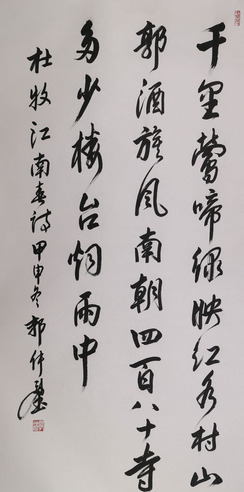 千里莺啼绿映红水村山
郭酒旗风南朝四百八十寺
多少楼台烟雨中
杜牧江南春诗甲申冬郭